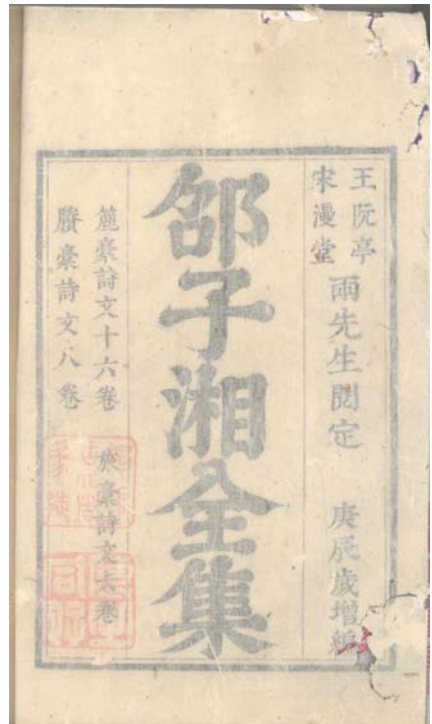 王阮亭
宋漫堂
兩先生閱定 庚辰歲增編
邵子湘全集
簏稾詩文十六卷 旅稾詩文六卷
賸稾詩文八卷